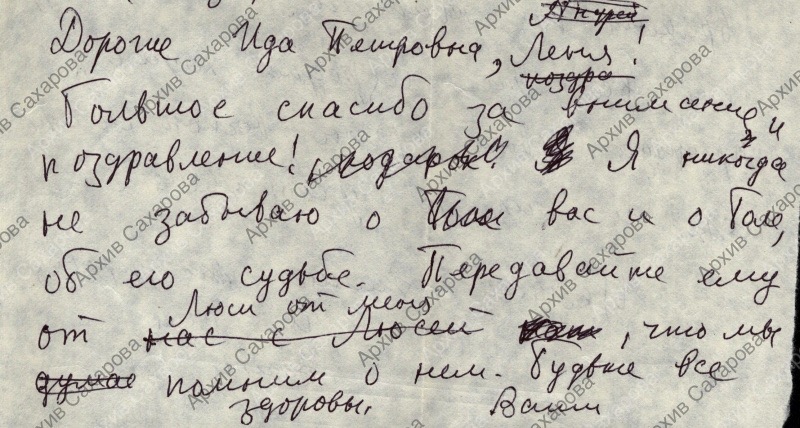 Андрей
Дорогие Ида Петровна, Леня!
поздра
Большое спасибо за внимание и
поздравление!, подарок! Я никогда
не забываю о вас и о Толе,
об его судьбе. Передавайте ему
Люси от меня
от нас с Люсей, что мы
думае помним о нем. Будьте все
здоровы. Ваш
Архив Сахарова